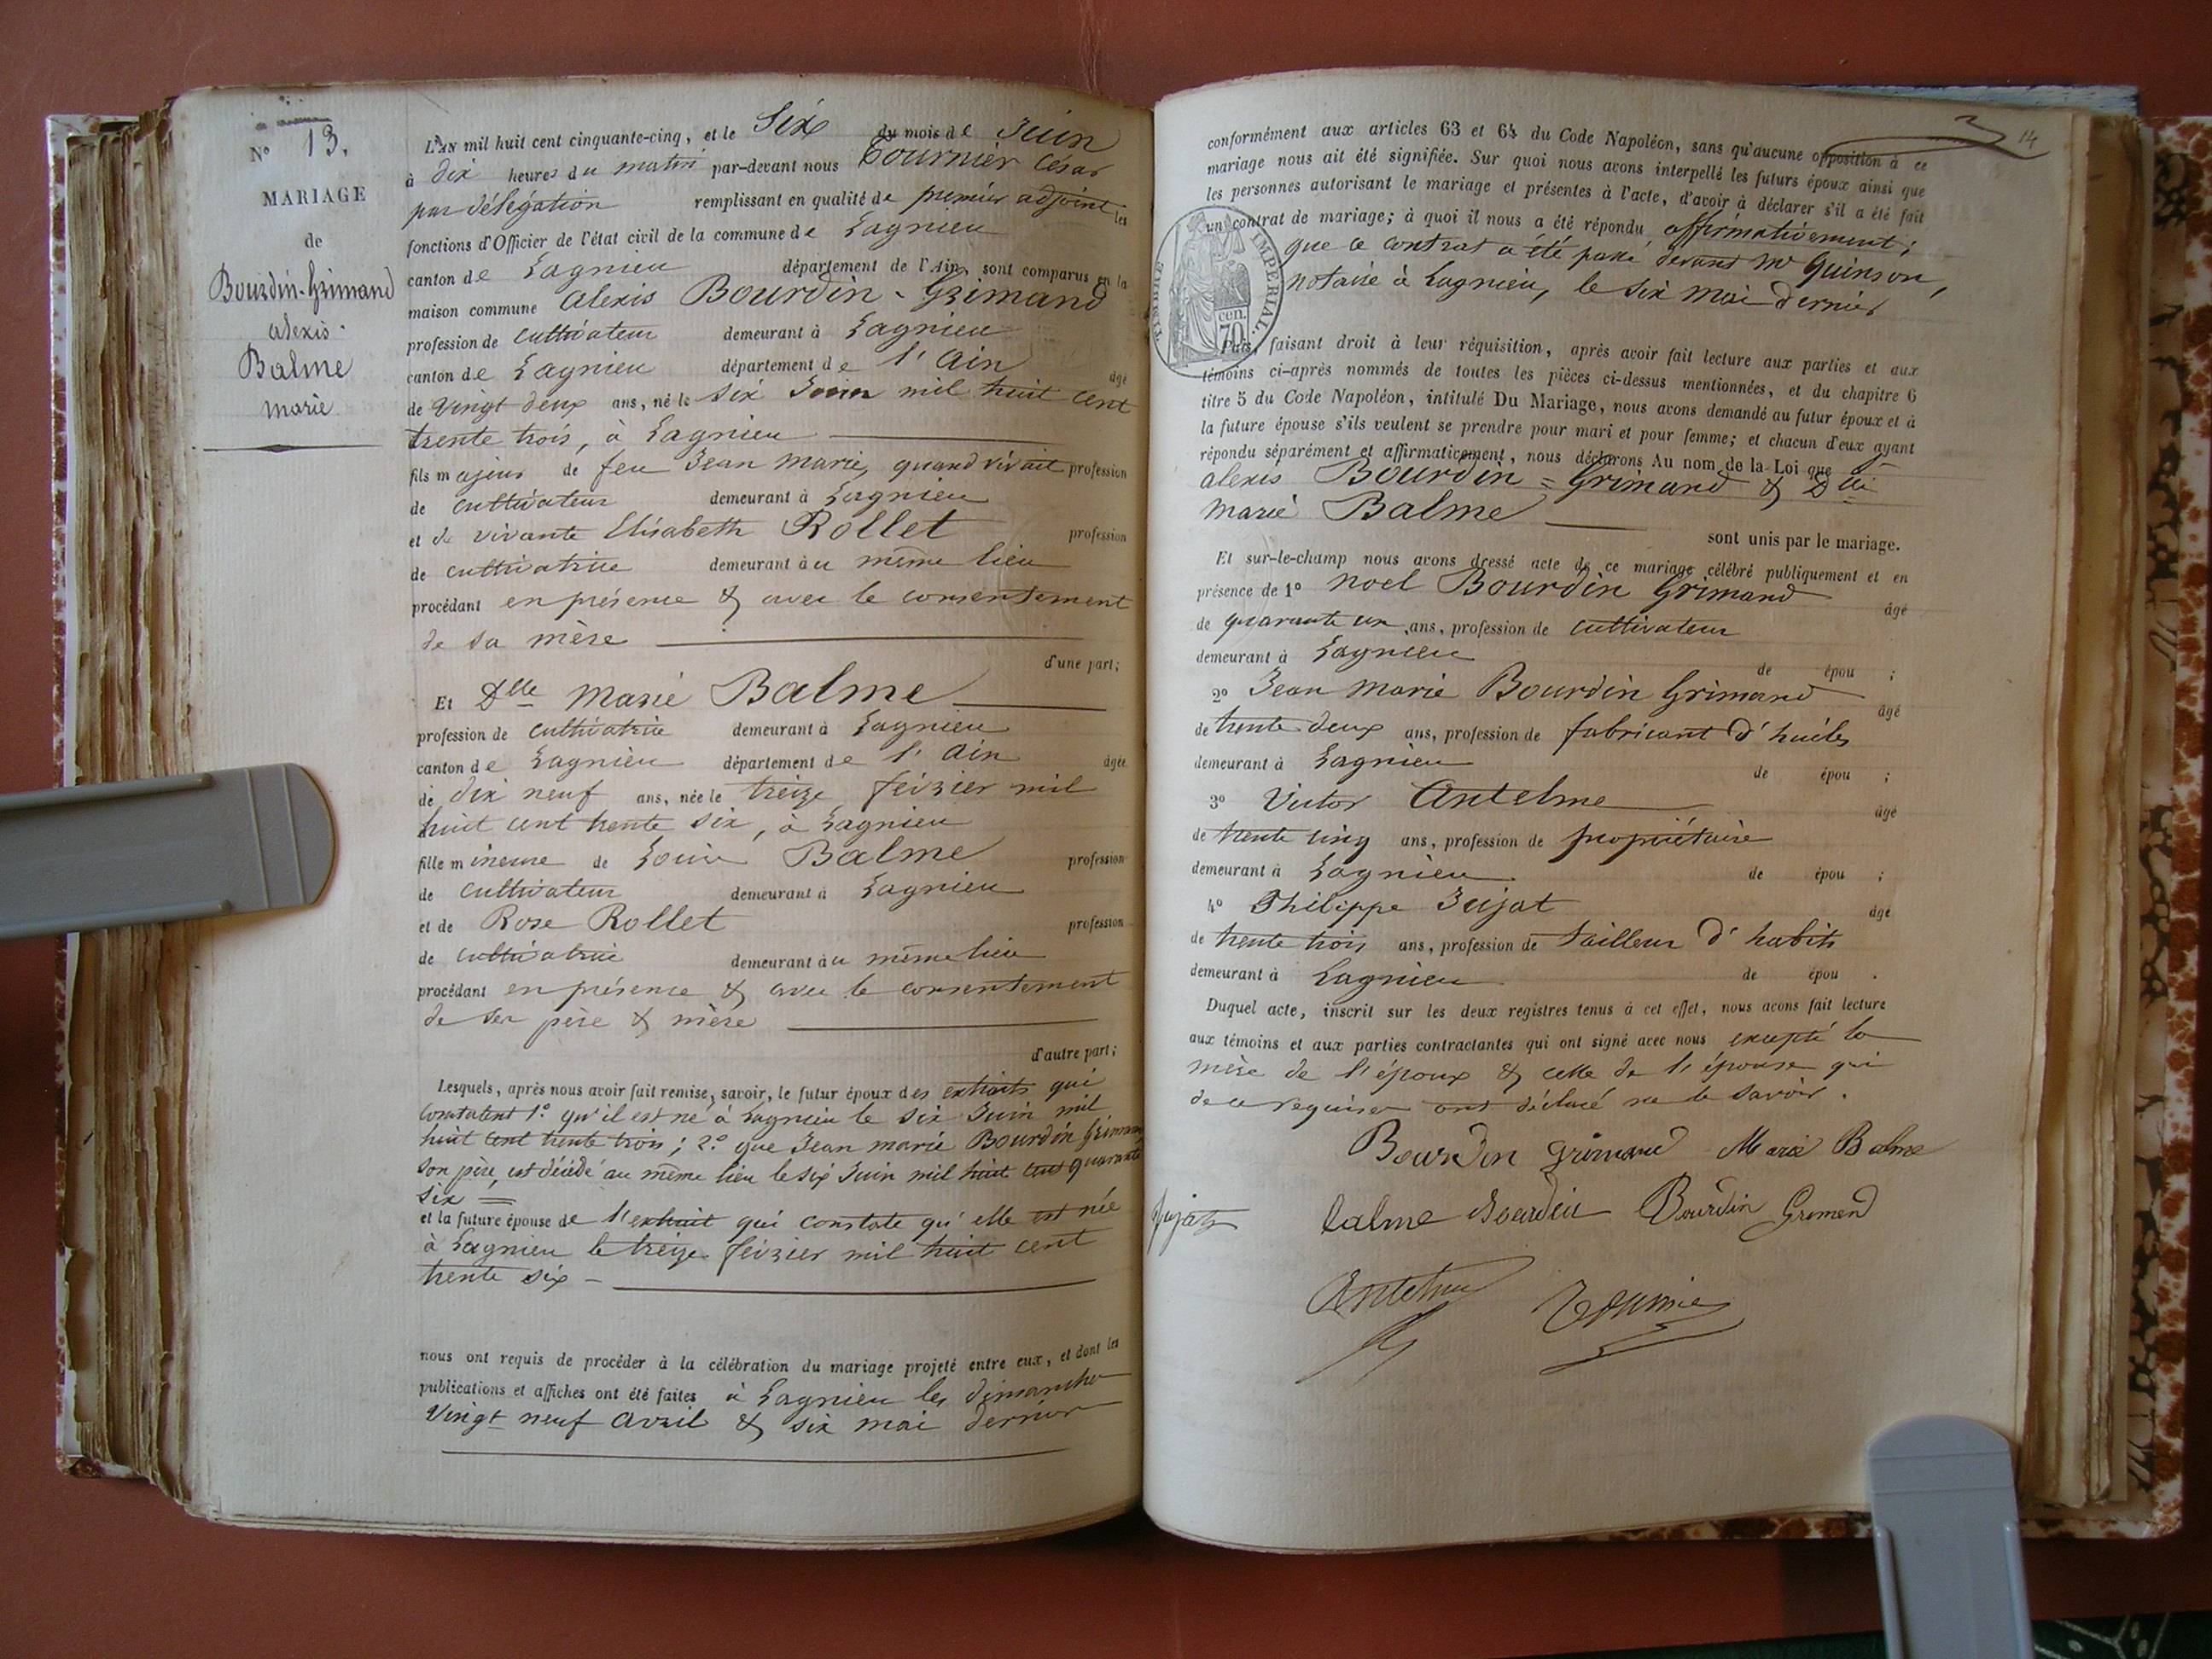 N° 13.
MARIAGE
de
Bourdin-Grimand
alexis.
Balme
marie
L'AN mil huit cent cinquante-cinq, et le Six du mois de Juin
à dix heures du matin par-devant nous Tournier César
par délégation remplissant en qualité de premier adjoint les
fonctions d'Officier de l'état civil de la commune de Lagnieu
canton de Lagnieu département de l'Ain, sont comparus en la
maison commune Alexis Bourdin-Grimand
profession de cultivateur demeurant à Lagnieu
canton de Lagnieu département de l'Ain âgé
de vingt deux ans, né le six Juin mil huit cent
trente trois, à Lagnieu
fils majeur de feu Jean marie, quand vivait profession
de cultivateur demeurant à Lagnieu
et de vivante Elisabeth Rollet profession
de cultivatrice demeurant au même lieu
procédant en présence & avec le consentement
de sa mère
d'une part;
Et Dlle Marie Balme
profession de cultivatrice demeurant à Lagnieu
canton de Lagnieu département de l'Ain âgée
de dix neuf ans, née le treize février mil
huit cent trente six, à Lagnieu
fille mineure de Louis Balme profession
de cultivateur demeurant à Lagnieu
et de Rose Rollet profession
de cultivatrice demeurant au même lieu
procédant en présence & avec le consentement
de ses père & mère
d'autre part;
Lesquels, après nous avoir fait remise, savoir, le futur époux des extraits qui
constatent 1° qu'il est né à Lagnieu le six Juin mil
huit cent trente trois; 2° que Jean marie Bourdin Grimand
son père, est décédé au même lieu le six Juin mil huit cent quarante
six
et la future épouse de l'extrait qui constate qu'elle est née
à Lagnieu le treize février mil huit cent
trente six
nous ont requis de procéder à la célébration du mariage projeté entre eux, et dont les
publications et affiches ont été faites à Lagnieu les dimanches
Vingt neuf avril & six mai dernier
14
conformément aux articles 63 et 64 du Code Napoléon, sans qu'aucune opposition à ce
mariage nous ait été signifiée. Sur quoi nous avons interpellé les futurs époux ainsi que
les personnes autorisant le mariage et présentes à l'acte, d'avoir à déclarer s'il a été fait
un contrat de mariage; à quoi il nous a été répondu affirmativement;
que ce contrat a été passé devant Me Quinson,
notaire à Lagnieu, le six Mai dernier
TIMBRE IMPÉRIAL.
70 cen.
Puis, faisant droit à leur réquisition, après avoir fait lecture aux parties et aux
témoins ci-après nommés de toutes les pièces ci-dessus mentionnées, et du chapitre 6
titre 5 du Code Napoléon, intitulé Du Mariage, nous avons demandé au futur époux et à
la future épouse s'ils veulent se prendre pour mari et pour femme; et chacun d'eux ayant
répondu séparément et affirmativement, nous déclarons Au nom de la Loi que
alexis Bourdin=Grimand & Dlle
Marie Balme
sont unis par le mariage.
Et sur-le-champ nous avons dressé acte de ce mariage célébré publiquement et en
présence de 1° Noel Bourdin Grimand âgé
de quarante un ans, profession de cultivateur
demeurant à Lagnieu de épou ;
2° Jean Marie Bourdin Grimand âgé
de trente deux ans, profession de fabricant d'huiles
demeurant à Lagnieu de épou ;
3° Victor Antelme âgé
de trente cinq ans, profession de propriétaire
demeurant à Lagnieu de épou ;
4° Philippe Jujat âgé
de trente trois ans, profession de tailleur d'habits
demeurant à Lagnieu de épou .
Duquel acte, inscrit sur les deux registres tenus à cet effet, nous avons fait lecture
aux témoins et aux parties contractantes qui ont signé avec nous excepté la
mère de l'époux & celle de l'épouse qui
de ce requises ont déclaré ne le savoir.
Bourdin grimand Marie Balme
Jujat balme Bourdin Bourdin Grimand
Antelme Tournier